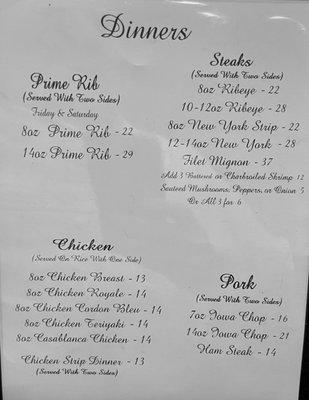 Dinners
Prime Rib
(Served With Two Sides)
Friday & Saturday
8oz Prime Rib - 22
14oz Prime Rib - 29
Steaks
(Served With Two Sides)
8oz Ribeye - 22
10-12oz Ribeye - 28
8oz New York Strip - 22
12-14oz New York - 28
Filet Mignon - 37
Add 3 Battered or Charbroiled Shrimp 12
Sauteed Mushrooms, Peppers, or Onion 5
Or All 3 for 6
Chicken
(Served On Rice With One Side)
8oz Chicken Breast - 13
8oz Chicken Royale - 14
8oz Chicken Cordon Bleu - 14
8oz Chicken Teriyaki - 14
8oz Casablanca Chicken - 14
Chicken Strip Dinner - 13
(Served With Two Sides)
Pork
(Served With Two Sides)
7oz Iowa Chop - 16
14oz Iowa Chop - 21
Ham Steak - 14